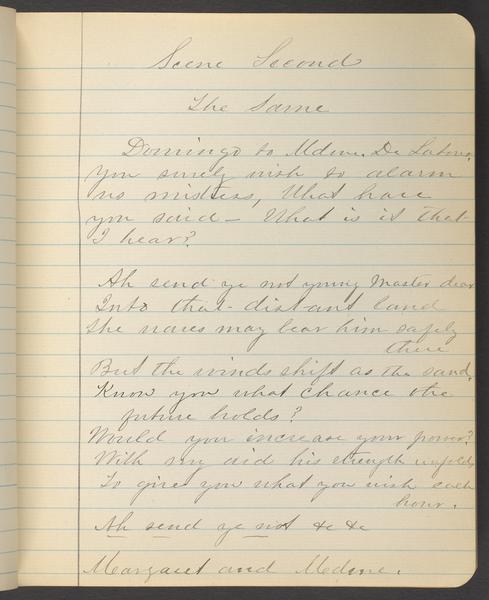 Scene Second
The Same
Domingo to Mdme. De Latour.
You surely wish to alarm
us mistress, What have
you said — What is it that
I hear?
Ah send ye not young Master dear
Into that distant land
The waves may bear him safely
there
But the winds shift as the sand.
Know you what chance the
future holds?
Would you increase your power?
With my aid his strength unfolds
To give you what you wish each
hour.
Ah send ye not &c &c
Margaret and Mdme.